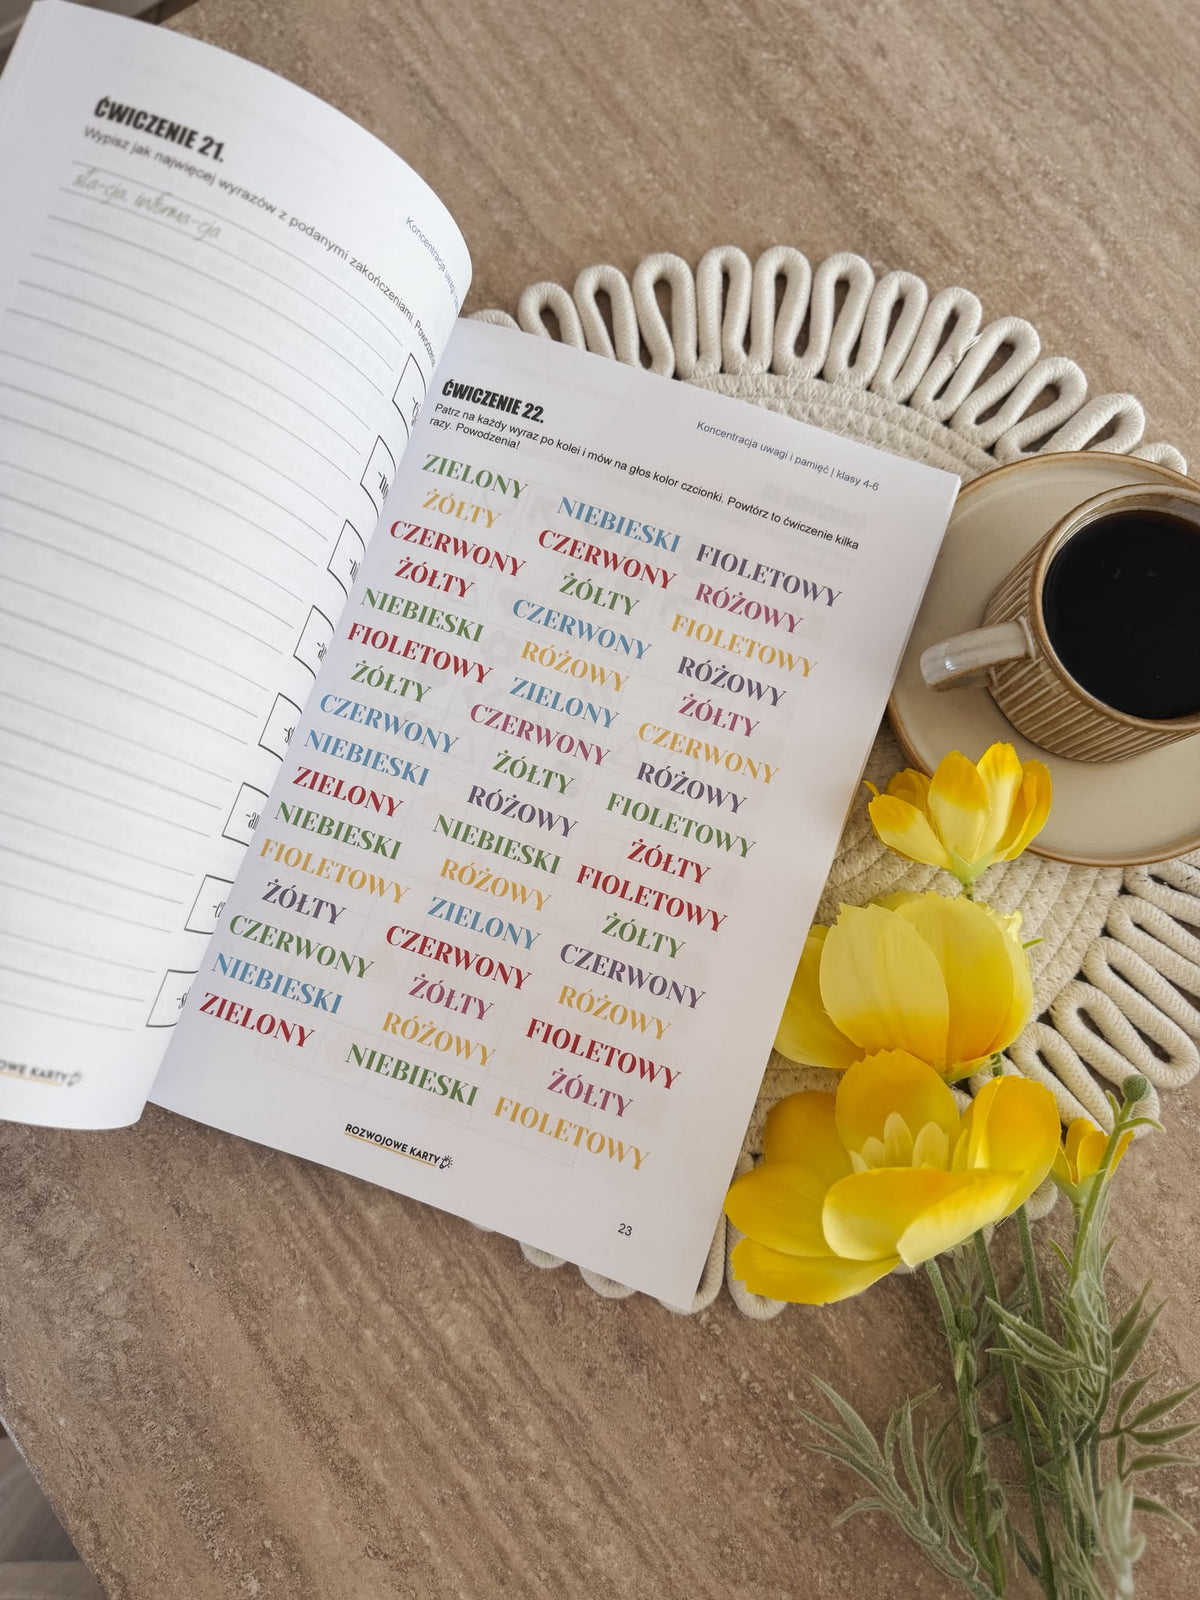 ĆWICZENIE 21.
Wypisz jak najwięcej wyrazów z podanymi zakończeniami. Powodzenia
sta-cja, informa-cja
Koncentracja uwagi i
ROZWOJOWE KARTY
ĆWICZENIE 22.
Koncentracja uwagi i pamięć | klasy 4-6
Patrz na każdy wyraz po kolei i mów na głos kolor czcionki. Powtórz to ćwiczenie kilka
razy. Powodzenia!
ZIELONY NIEBIESKI FIOLETOWY
ŻÓŁTY CZERWONY RÓŻOWY
CZERWONY ŻÓŁTY FIOLETOWY
ŻÓŁTY CZERWONY RÓŻOWY
NIEBIESKI RÓŻOWY ŻÓŁTY
FIOLETOWY ZIELONY CZERWONY
ŻÓŁTY CZERWONY RÓŻOWY
CZERWONY ŻÓŁTY FIOLETOWY
NIEBIESKI RÓŻOWY ŻÓŁTY
ZIELONY NIEBIESKI FIOLETOWY
NIEBIESKI RÓŻOWY ŻÓŁTY
FIOLETOWY ZIELONY CZERWONY
ŻÓŁTY CZERWONY RÓŻOWY
CZERWONY ŻÓŁTY FIOLETOWY
NIEBIESKI RÓŻOWY ŻÓŁTY
ZIELONY NIEBIESKI FIOLETOWY
ROZWOJOWE KARTY
23